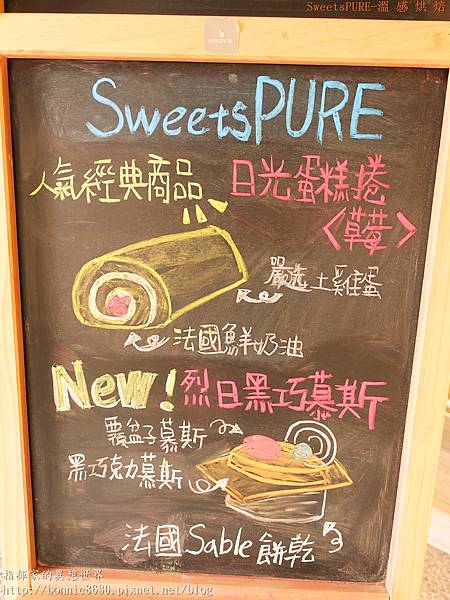 SweetsPURE-溫感烘焙
SweetsPURE
人氣經典商品 日光蛋糕捲
<草莓>
嚴选土雞蛋
法國鮮奶油
New! 烈日黑巧慕斯
覆盆子慕斯
黑巧克力慕斯
法國Sable餅乾
指揮家的異想世界
http://bonnie8630.pixnet.net/blog